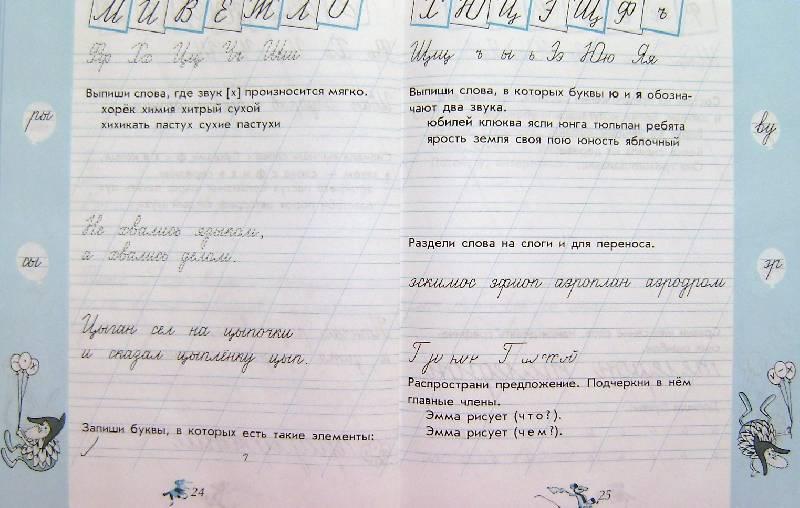 М И В Е Т Л О
Фф Хх Цц Чч Шш
Выпиши слова, где звук [х] произносится мягко.
хорёк химия хитрый сухой
хихикать пастух сухие пастухи
ры
Не хвались языком,
а хвались делом.
сы
Цыган сел на цыпочки
и сказал цыплёнку цып.
Запиши буквы, в которых есть такие элементы:
24
Х Ю Ц Э Щ Ф ъ
Щщ ъ ы ь Ээ Юю Яя
Выпиши слова, в которых буквы ю и я обозна-
чают два звука.
юбилей клюква ясли юнга тюльпан ребята
ярость земля своя пою юность яблочный
ву
Раздели слова на слоги и для переноса.
эскимос эфиоп аэроплан аэродром
эр
Распространи предложение. Подчеркни в нём
главные члены.
Эмма рисует (что?).
Эмма рисует (чем?).
25